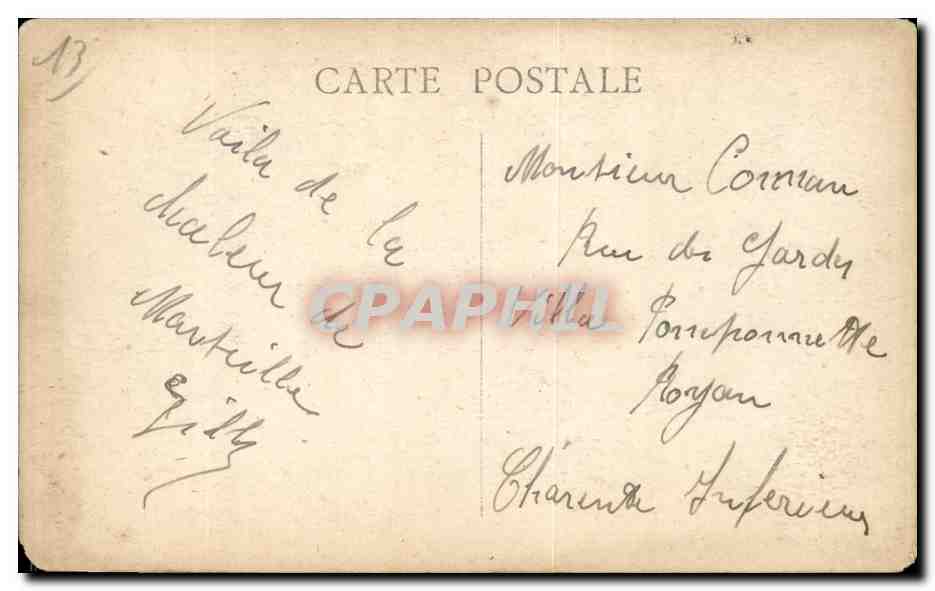 13
CARTE POSTALE
Voila de
la
chaleur de
Marseille
Gilly
Monsieur Cornau
Rue des Gardes
Villa Pomponnette
Royan
Charente Inferieure
CPAPHIL